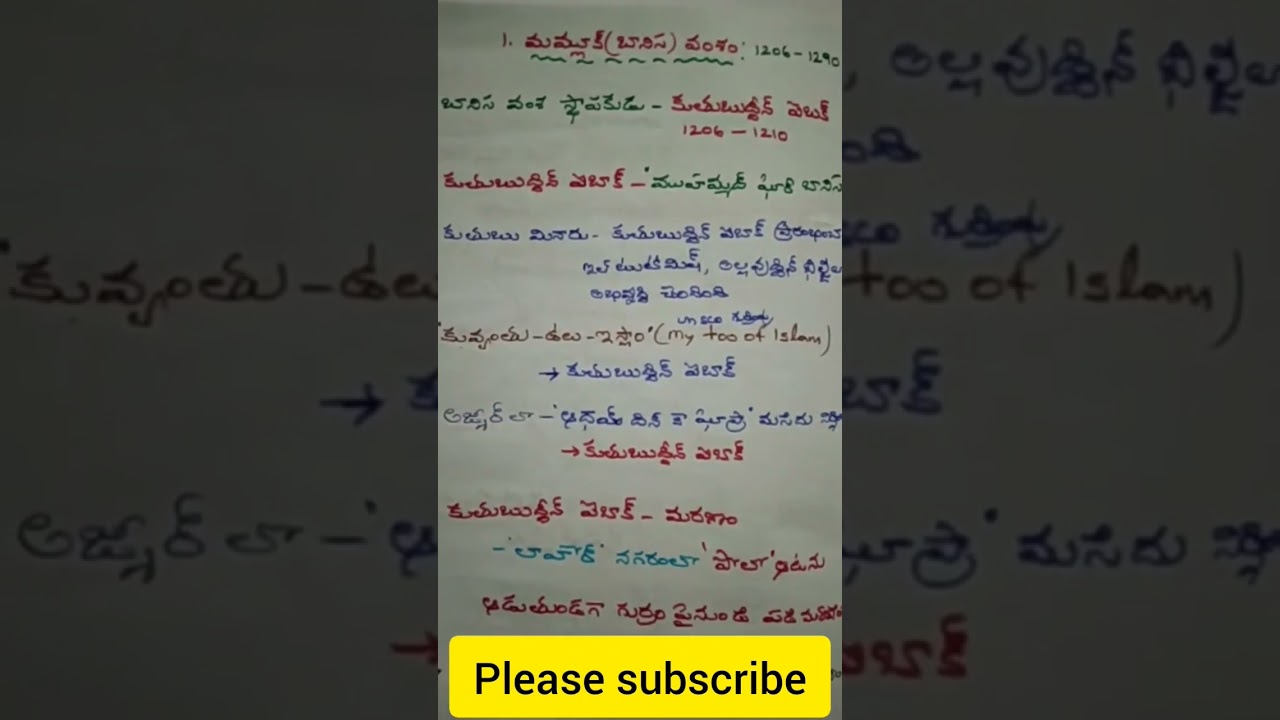 1. మమ్లూక్(బానిస) వంశం: 1206-1290
బానిస వంశ స్థాపకుడు - కుతుబుద్దీన్ ఐబక్
1206 - 1210
కుతుబుద్దిన్ ఐబాక్ - 'ముహమ్మద్ ఘోరి బానిస
కుతుబు మినారు - కుతుబుద్దిన్ ఐబాక్ ప్రారంభించా
ఇల్ టుట్ మిష్, అల్లవుద్దిన్ ఖిల్జీల
అభివృద్ధి చెందింది
'కువ్వంతు-ఉలు-ఇస్లాం' (my too of Islam)
→ కుతుబుద్దిన్ ఐబాక్
అజ్మర్ లో - 'అధయ్ దిన్ కా ఘోప్రా' మసీదు
→ కుతుబుద్దీన్ ఐబాక్
కుతుబుద్దీన్ ఐబాక్ - మరణం
- 'లాహోర్' నగరంలో 'పోలో' ఆటను
ఆడుతుండగా గుర్రం పైనుండి పడి
Please subscribe